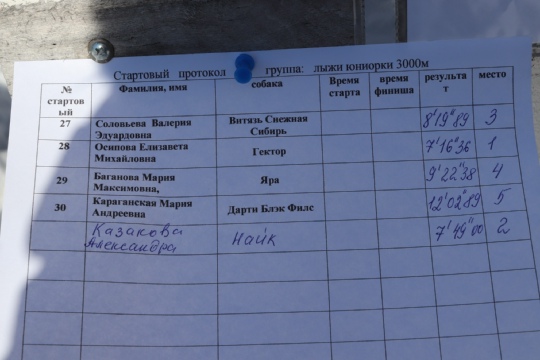 Стартовый протокол группа: лыжи юниорки 3000м
№ стартов ый Фамилия, имя собака Время старта время финиша результа т место
27 Соловьева Валерия Эдуардовна Витязь Снежная Сибирь 8'19"89 3
28 Осипова Елизавета Михайловна Гектор 7'16"36 1
29 Баганова Мария Максимовна, Яра 9'22"38 4
30 Караганская Мария Андреевна Дарти Блэк Филс 12'02"89 5
Казакова Александра Найк 7'49"00 2